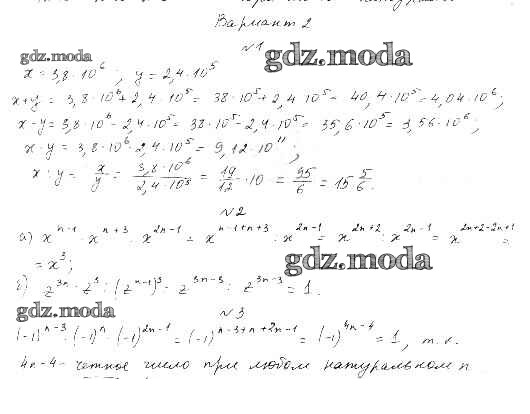 Вариант 2
№1
gdz.moda
gdz.moda
x = 3,8 · 10^6 ; y = 2,4 · 10^5
x+y = 3,8 · 10^6 + 2,4 · 10^5 = 38 · 10^5 + 2,4 · 10^5 = 40,4 · 10^5 = 4,04 · 10^6 ;
x - y = 3,8 · 10^6 - 2,4 · 10^5 = 38 · 10^5 - 2,4 · 10^5 = 35,6 · 10^5 = 3,56 · 10^6 ;
x · y = 3,8 · 10^6 · 2,4 · 10^5 = 9,12 · 10^11 ;
x : y = x/y = 3,8 · 10^6 / 2,4 · 10^5 = 19/12 · 10 = 95/6 = 15 5/6 .
№2
а) x^(n-1) · x^(n+3) : x^(2n-1) = x^(n-1+n+3) : x^(2n-1) = x^(2n+2) : x^(2n-1) = x^(2n+2-2n+1) =
= x^3 ;
gdz.moda
z^(3n) : z^3 : (z^(n-1))^3 = z^(3n-3) : z^(3n-3) = 1 .
gdz.moda
№3
(-1)^(n-3) · (-1)^n · (-1)^(2n-1) = (-1)^(n-3+n+2n-1) = (-1)^(4n-4) = 1 , т. к.
4n-4 - четное число при любом натуральном n